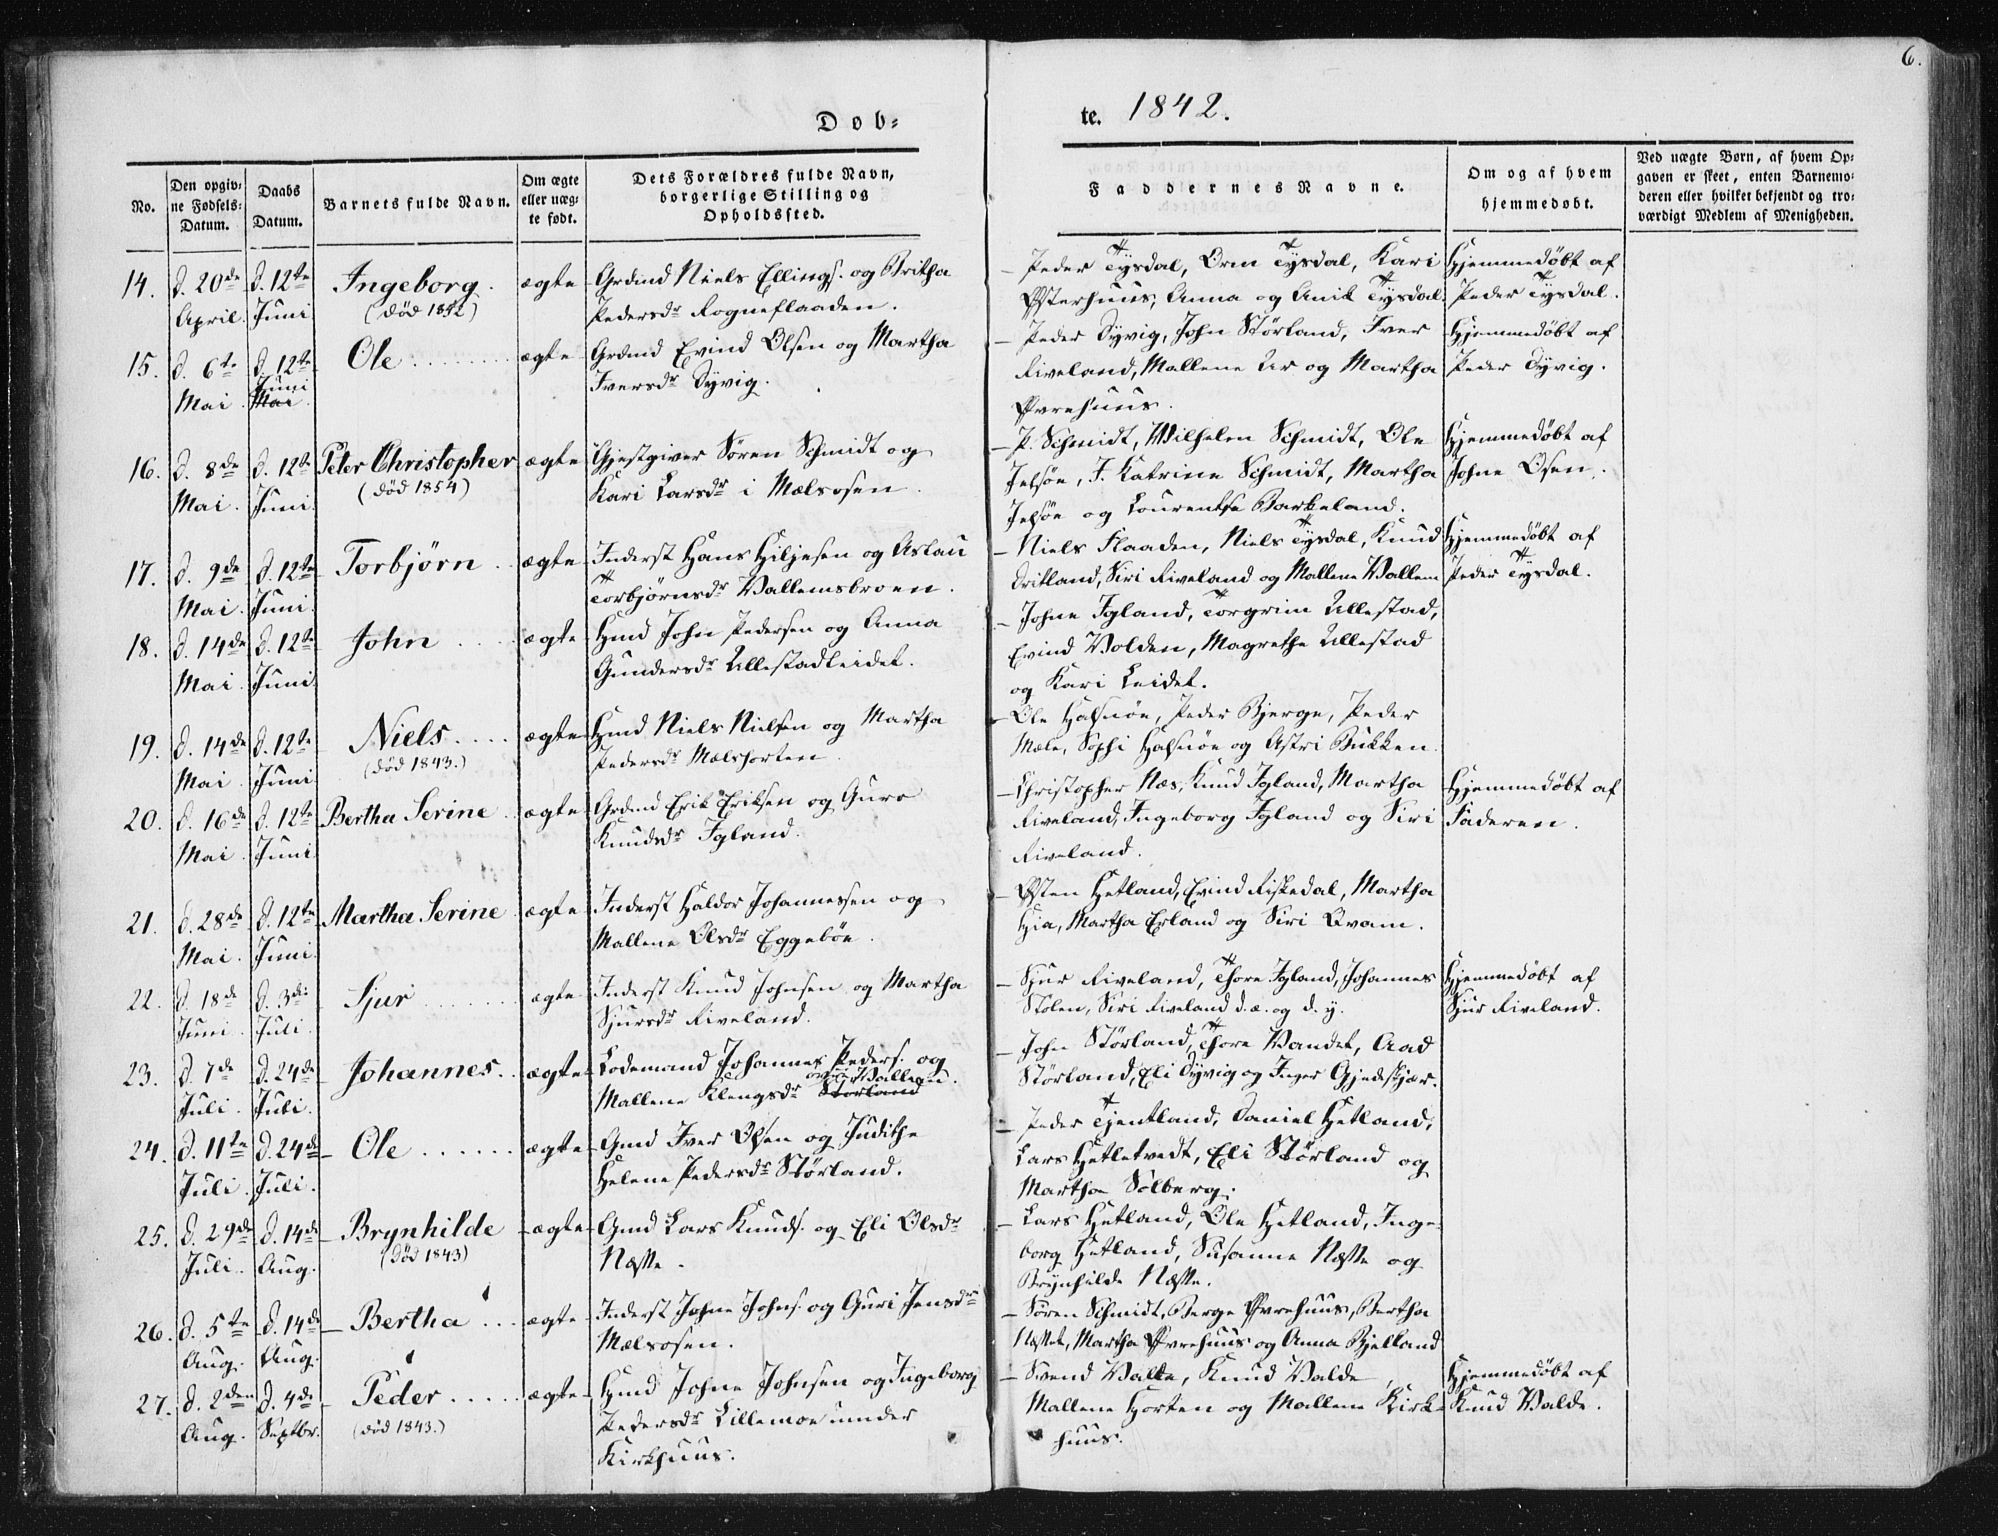 6.
Døb-
te. 1842.
No.
Den opgiv-
ne Fødsels-
Datum.
Daabs
Datum.
Barnets fulde Navn.
Om ægte
eller uæg-
te født.
Dets Forældres fulde Navn,
borgerlige Stilling og
Opholdssted.
Faddernes Navne.
Om og af hvem
hjemmedøbt.
Ved uægte Børn, af hvem Op-
gaven er skeet, enten Barnemo-
deren eller hvilket bekjendt og tro-
værdigt Medlem af Menigheden.
14.
d. 20de
April.
d. 12te
Juni
Ingeborg.
(død 1842)
ægte
Grdmd Niels Ellings. og Britha
Pedersdr Rogneflaaden.
Peder Tysdal, Orm Tysdal, Kari
Østerhuus, Anna og Anik Tysdal.
Hjemmedøbt af
Peder Tysdal.
15.
d. 6te
Mai.
d. 12te
Juni
Mai
Ole
ægte
Grdmd Evind Olsen og Martha
Iversdr Dyvig.
Peder Dyvig, John Størland, Iver
Riveland, Mallene Ur og Martha
Øvrehuus.
Hjemmedøbt af
Peder Dyvig.
16.
d. 8de
Mai.
d. 12te
Juni.
Peter Christopher
(død 1854)
ægte
Gjestgiver Søren Schmidt og
Kari Larsdr i Mælsosen.
P. Schmidt, Wilhelm Schmidt, Ole
Jelsøe, J. Katrine Schmidt, Martha
Jelsøe og Lourentse Barkeland.
Hjemmedøbt af
Johne Osen.
17.
d. 9de
Mai.
d. 12te
Juni.
Torbjørn
ægte
Inderst Hans Hiljesen og Aslau
Torbjørnsdr Vallemsbroen.
Niels Flaaden, Niels Tysdal, Knud
Dritland, Siri Riveland og Mallene Vallem
Hjemmedøbt af
Peder Tysdal.
18.
d. 14de
Mai.
d. 12te
Juni.
John
ægte
Hmd John Pedersen og Anna
Gundersdr Ullestadleidet.
Johne Igland, Torgrim Ullestad,
Evind Volden, Magrethe Ullestad
og Kari Leidet.
19.
d. 14de
Mai.
d. 12te
Juni
Niels
(død 1843.)
ægte
Hmd Niels Nielsen og Martha
Pedersdr Mælshorten
Ole Halsnøe, Peder Bjerge, Peder
Mæle, Sophi Halsnøe og Astri Bukken.
20.
d. 16de
Mai.
d. 12te
Juni.
Bertha Serine
ægte
Grdmd Erik Eriksen og Guro
Knudsdr Igland.
Christopher Næs, Knud Igland, Martha
Riveland, Ingeborg Igland og Siri
Riveland.
Hjemmedøbt af
Faderen.
21.
d. 28de
Mai.
d. 12te
Juni.
Martha Serine
ægte
Inderst Haldor Johannessen og
Mallene Olsdr Eggebøe.
Østen Hetland, Evind Riskedal, Martha
Hia, Martha Erland og Siri Qvam.
22.
d. 18de
Juni.
d. 3die
Juli.
Sjur
ægte
Inderst Knud Johnsen og Martha
Sjursdr Riveland.
Sjur Riveland, Thore Igland, Johannes
Stølen, Siri Riveland d. æ. og d. y.
Hjemmedøbt af
Sjur Riveland.
23.
d. 7de
Juli.
d. 24de
Juli.
Johannes.
ægte
Lodsmand Johannes Peders. og
Mallene Klengsdr Størland Vallem.
John Størland, Thore Vandet, Aad
Størland, Eli Dyvig og Inger Gjedeskjær.
24.
d. 11te
Juli.
d. 24de
Juli.
Ole
ægte
Gmd Iver Olsen og Judithe
Helene Pedersdr Størland.
Peder Tjentland, Daniel Hetland,
Lars Hetletvedt, Eli Størland og
Martha Solberg.
25.
d. 29de
Juli.
d. 14de
Aug.
Brynhilde
(død 1843)
ægte
Gmd Lars Knuds. og Eli Olsdr
Næsse.
Lars Hetland, Ole Hetland, Inge-
borg Hetland, Susanne Næsse og
Brynhilde Næsse.
26.
d. 5te
Aug.
d. 14de
Aug.
Bertha
ægte
Inderst Johne Johns. og Guri Jensdr
Mælsosen.
Søren Schmidt, Berge Øvrehuus, Bertha
Næsset, Martha Øvrehuus og Anna Bjelland
27.
d. 2den
Aug.
d. 4de
Septbr.
Peder
(død 1843.)
ægte
Hmd Johne Johnsen og Ingeborg
Pedersdr Lillemoe under
Kirkhuus.
Svend Valde, Knud Valde,
Mallene Horten og Mallene Kirk-
huus.
Hjemmedøbt af
Knud Valde.